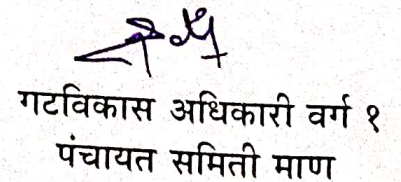 गटविकास अधिकारी वर्ग १
पंचायत समिती माण